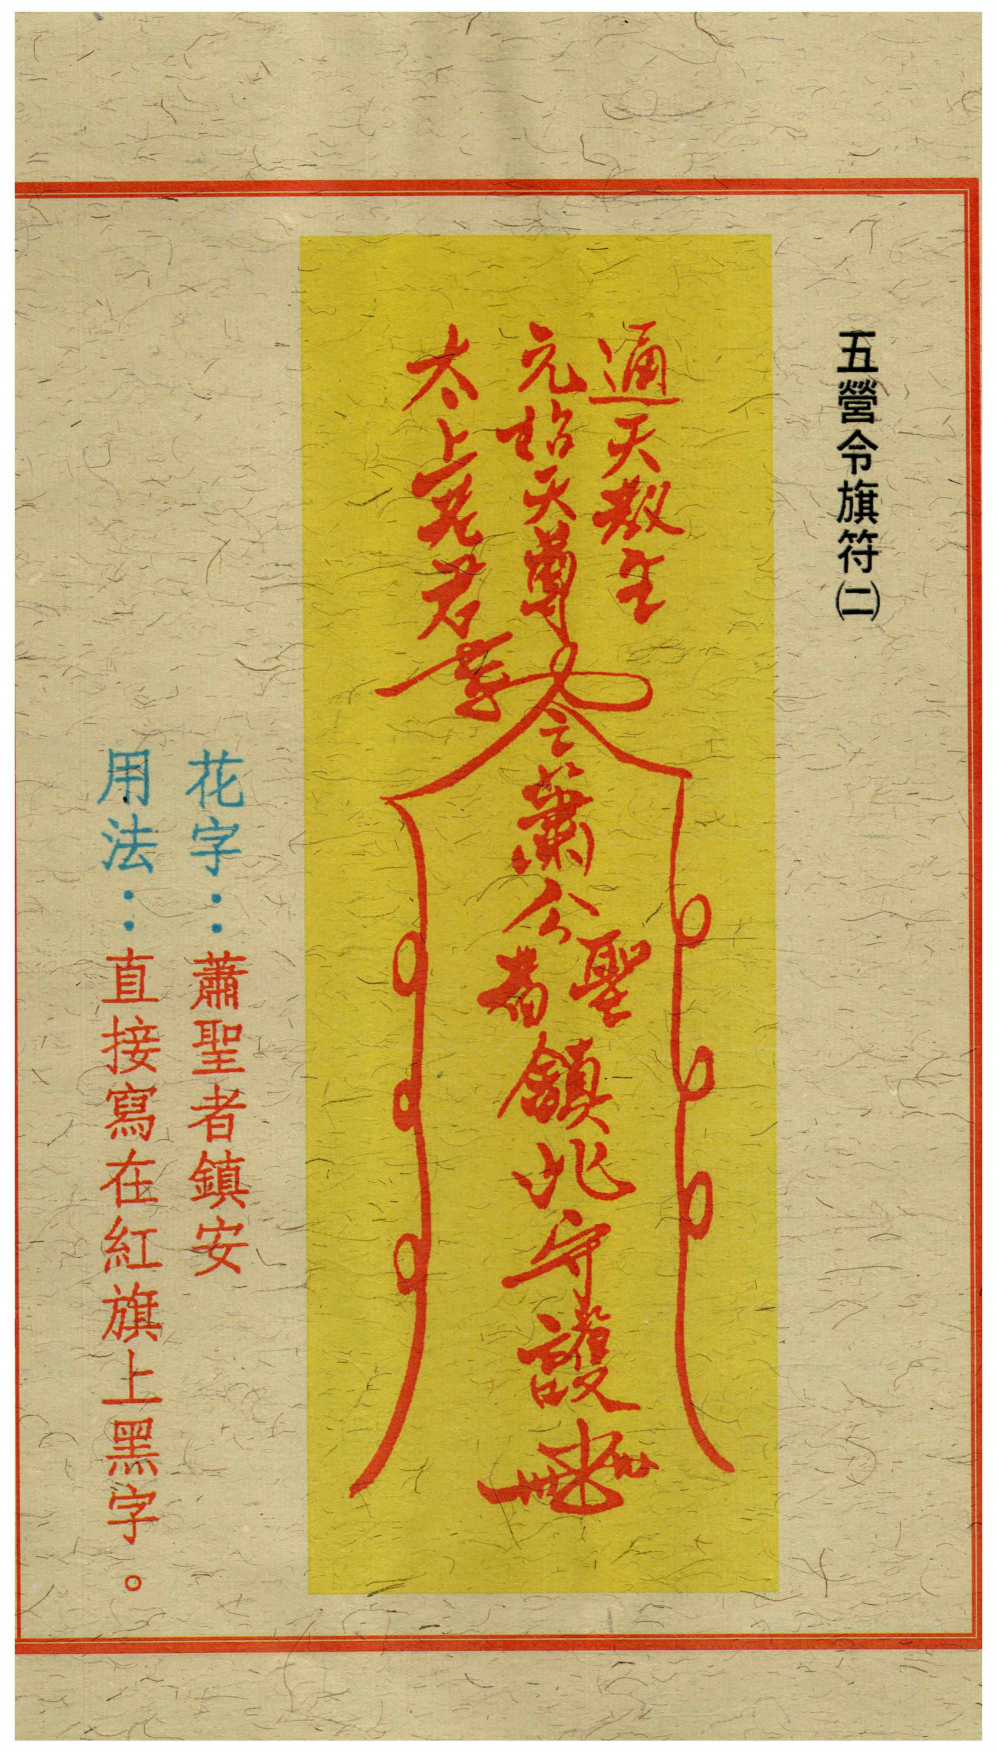 五營令旗符㈡
通天教主
元始天尊
太上老君
令
蕭公
聖者
鎮北守護
花字：蕭聖者鎮安
用法：直接寫在紅旗上黑字。